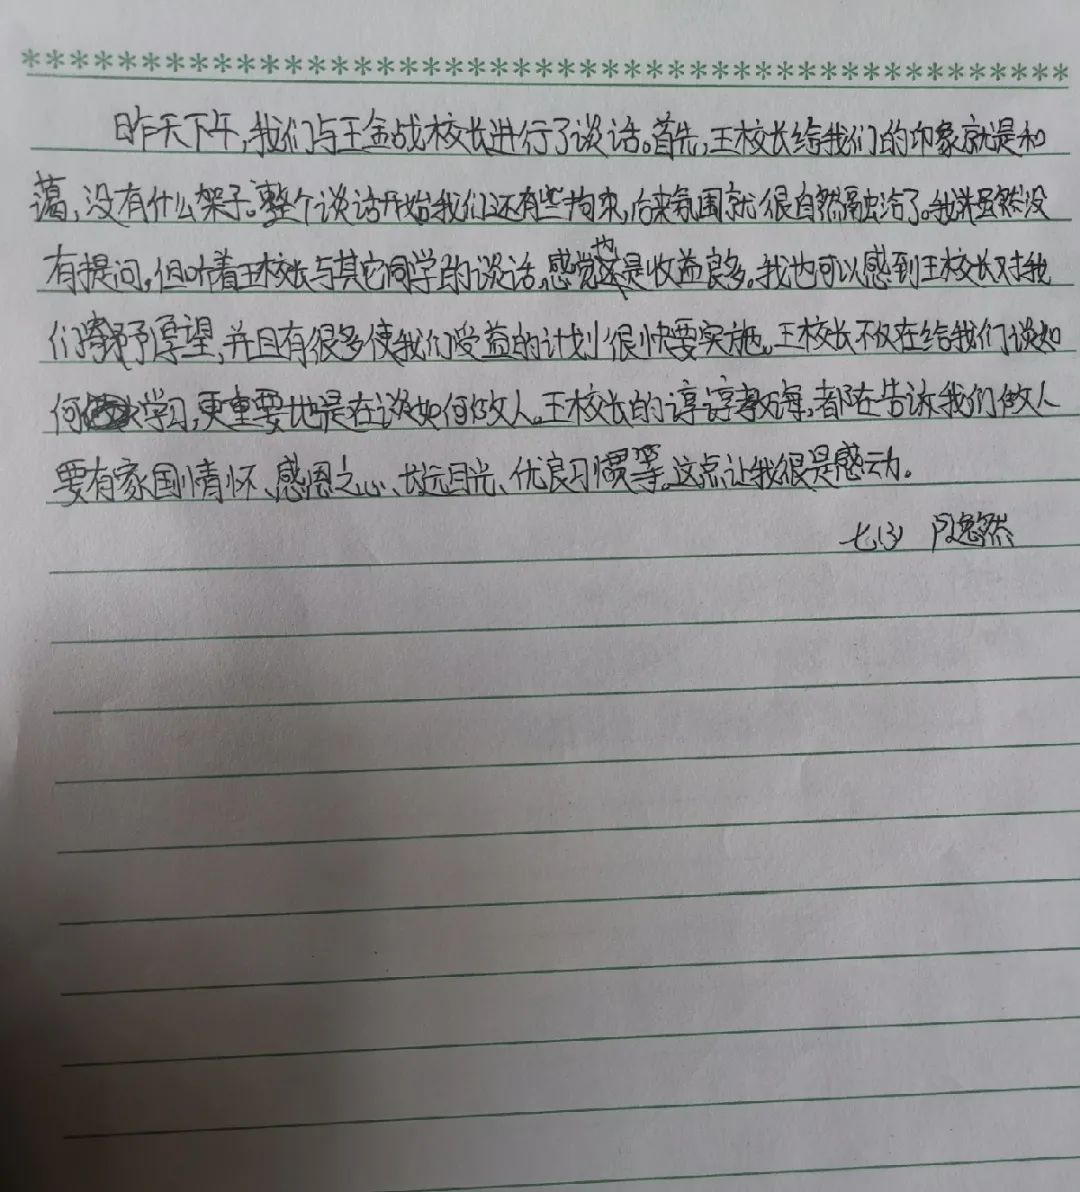 昨天下午,我们与王金战校长进行了谈话。首先,王校长给我们的印象就是和
蔼,没有什么架子。整个谈话开始我们还有些拘束,后来氛围就很自然融洽了。我虽然没
有提问,但听着王校长与其它同学的谈话,感觉也是收益良多。我也可以感到王校长对我
们寄予厚望,并且有很多使我们受益的计划很快要实施。王校长不仅在给我们谈如
何学习,更重要地是在谈如何做人。王校长的谆谆教诲,都在告诉我们做人
要有家国情怀、感恩之心、长远目光、优良习惯等。这点让我很是感动。
逸然